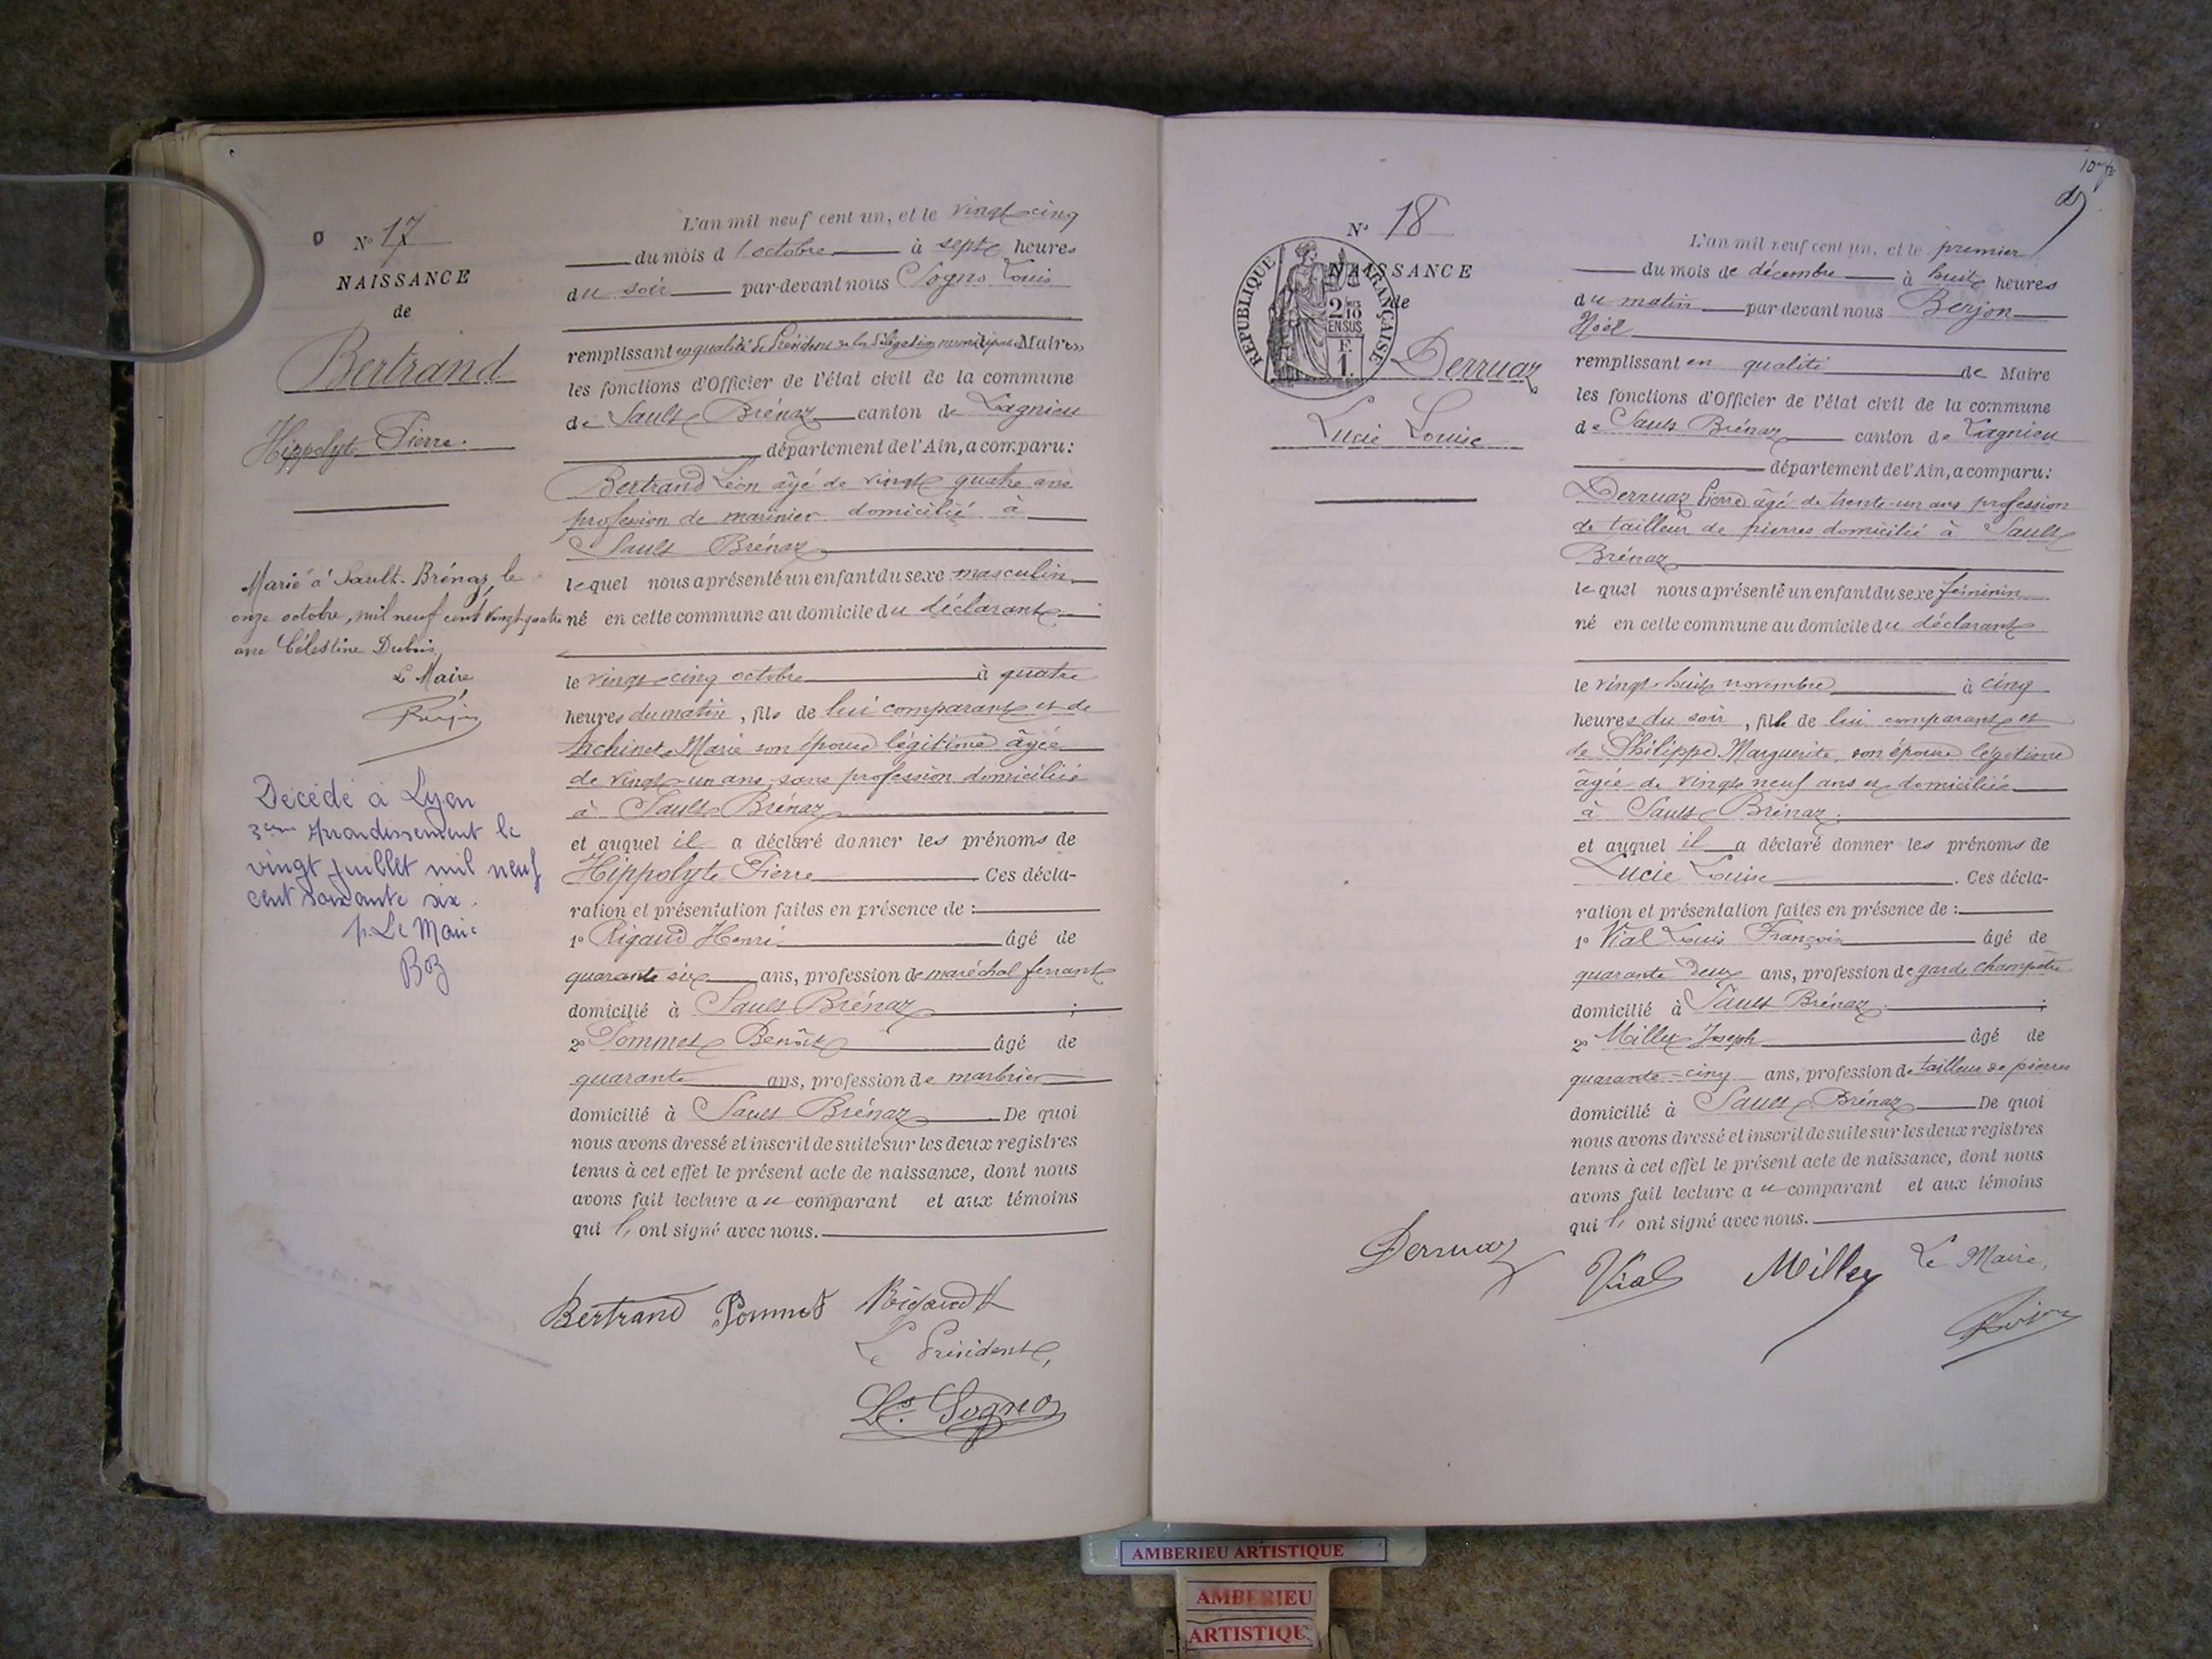 N° 17
NAISSANCE
de
Bertrand
Hippolyte Pierre.
Marié à Sault-Brénaz, le
onze octobre, mil neuf cent vingt-quatre
avec Célestine Dubois
Le Maire
Décédé à Lyon
3ème arrondissement le
vingt juillet mil neuf
cent soixante six.
p. Le Maire
L'an mil neuf cent un, et le vingt-cinq
du mois d'octobre à sept heures
du soir par-devant nous Sogno Louis
remplissant en qualité de Président de la Délégation municipale Maire
les fonctions d'Officier de l'état civil de la commune
de Sault-Brénaz canton de Lagnieu
département de l'Ain, a comparu:
Bertrand Léon âgé de vingt quatre ans
profession de marinier domicilié à
Sault Brénaz
lequel nous a présenté un enfant du sexe masculin
né en cette commune au domicile du déclarant
le vingt-cinq octobre à quatre
heures du matin, fils de lui comparant et de
Archinet Marie son épouse légitime âgée
de vingt-un ans, sans profession domiciliée
à Sault-Brénaz
et auquel il a déclaré donner les prénoms de
Hippolyte Pierre Ces décla-
ration et présentation faites en présence de :
1° Rigaud Henri âgé de
quarante six ans, profession de maréchal ferrant
domicilié à Sault Brénaz ;
2° Pommet Benoît âgé de
quarante ans, profession de marbrier
domicilié à Sault Brénaz De quoi
nous avons dressé et inscrit de suite sur les deux registres
tenus à cet effet le présent acte de naissance, dont nous
avons fait lecture au comparant et aux témoins
qui l' ont signé avec nous.
Bertrand Pommet Rigaud H
Le Président,
Ls. Sogno
N° 18
NAISSANCE
de
REPUBLIQUE FRANÇAISE
2/10
EN SUS
F.
1.
Derruaz
Lucie Louise
L'an mil neuf cent un, et le premier
du mois de décembre à huit heures
du matin par-devant nous Berjon
Noël
remplissant en qualité de Maire
les fonctions d'Officier de l'état civil de la commune
de Sault Brénaz canton de Lagnieu
département de l'Ain, a comparu:
Derruaz Pierre âgé de trente-un ans profession
de tailleur de pierres domicilié à Sault
Brénaz
lequel nous a présenté un enfant du sexe féminin
né en cette commune au domicile du déclarant
le vingt-huit novembre à cinq
heures du soir, fille de lui comparant et
de Philippe Marguerite, son épouse légitime
âgée de vingt neuf ans et domiciliée
à Sault-Brénaz.
et auquel il a déclaré donner les prénoms de
Lucie Louise. Ces décla-
ration et présentation faites en présence de :
1° Vial Louis François âgé de
quarante deux ans, profession de garde champêtre
domicilié à Sault Brénaz. ;
2° Milley Joseph âgé de
quarante-cinq ans, profession de tailleur de pierres
domicilié à Sault-Brénaz De quoi
nous avons dressé et inscrit de suite sur les deux registres
tenus à cet effet le présent acte de naissance, dont nous
avons fait lecture au comparant et aux témoins
qui l' ont signé avec nous.
Derruaz Vial Milley Le Maire,
AMBERIEU ARTISTIQUE
AMBERIEU
ARTISTIQU